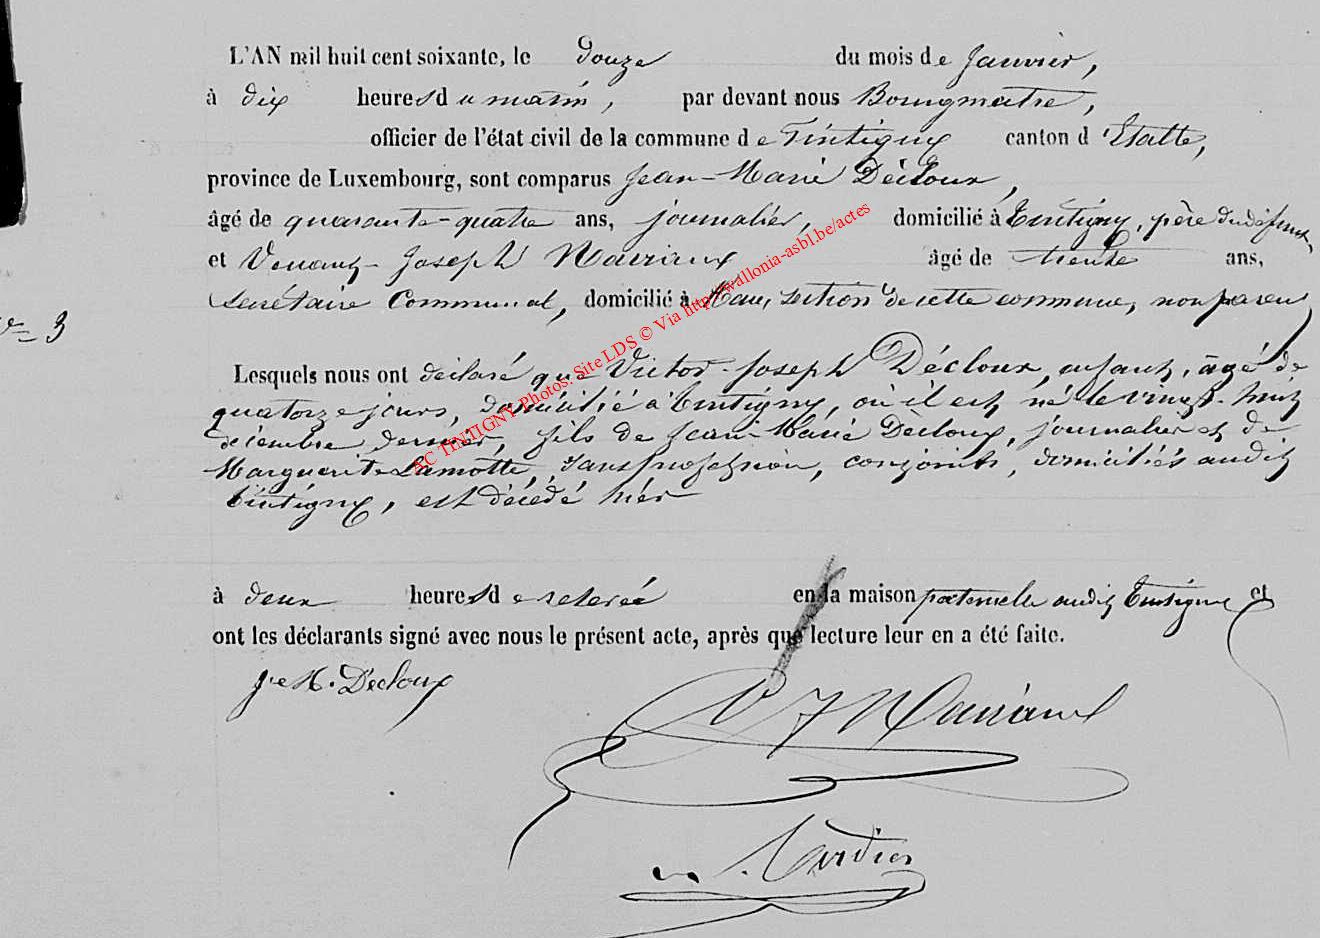 L'AN mil huit cent soixante, le douze du mois de Janvier,
à dix heures du matin, par devant nous Bourgmestre,
officier de l'état civil de la commune de Tintigny canton d'Etalle,
province de Luxembourg, sont comparus Jean-Marie Décloux,
âgé de quarante-quatre ans, journalier, domicilié à Tintigny, père du défunt,
et Venant-Joseph Mauriaux âgé de trente ans,
secrétaire Communal, domicilié à section de cette commune, non parent
N° 3
Lesquels nous ont déclaré que Victor-Joseph Décloux, enfant, âgé de
quatorze jours, domicilié à Tintigny, où il est né le vingt-huit
décembre dernier, fils de Jean-Marie Décloux, journalier et de
Marguerite Lamotte, sans profession, conjoints, domiciliés audit
Tintigny, est décédé hier
à deux heures de relevée en la maison paternelle audit Tintigny et
ont les déclarants signé avec nous le présent acte, après que lecture leur en a été faite.
J. M. Décloux
V J Mauriaux
AC TINTIGNY Photos: Site LDS © Via http://wallonia-asbl.be/actes